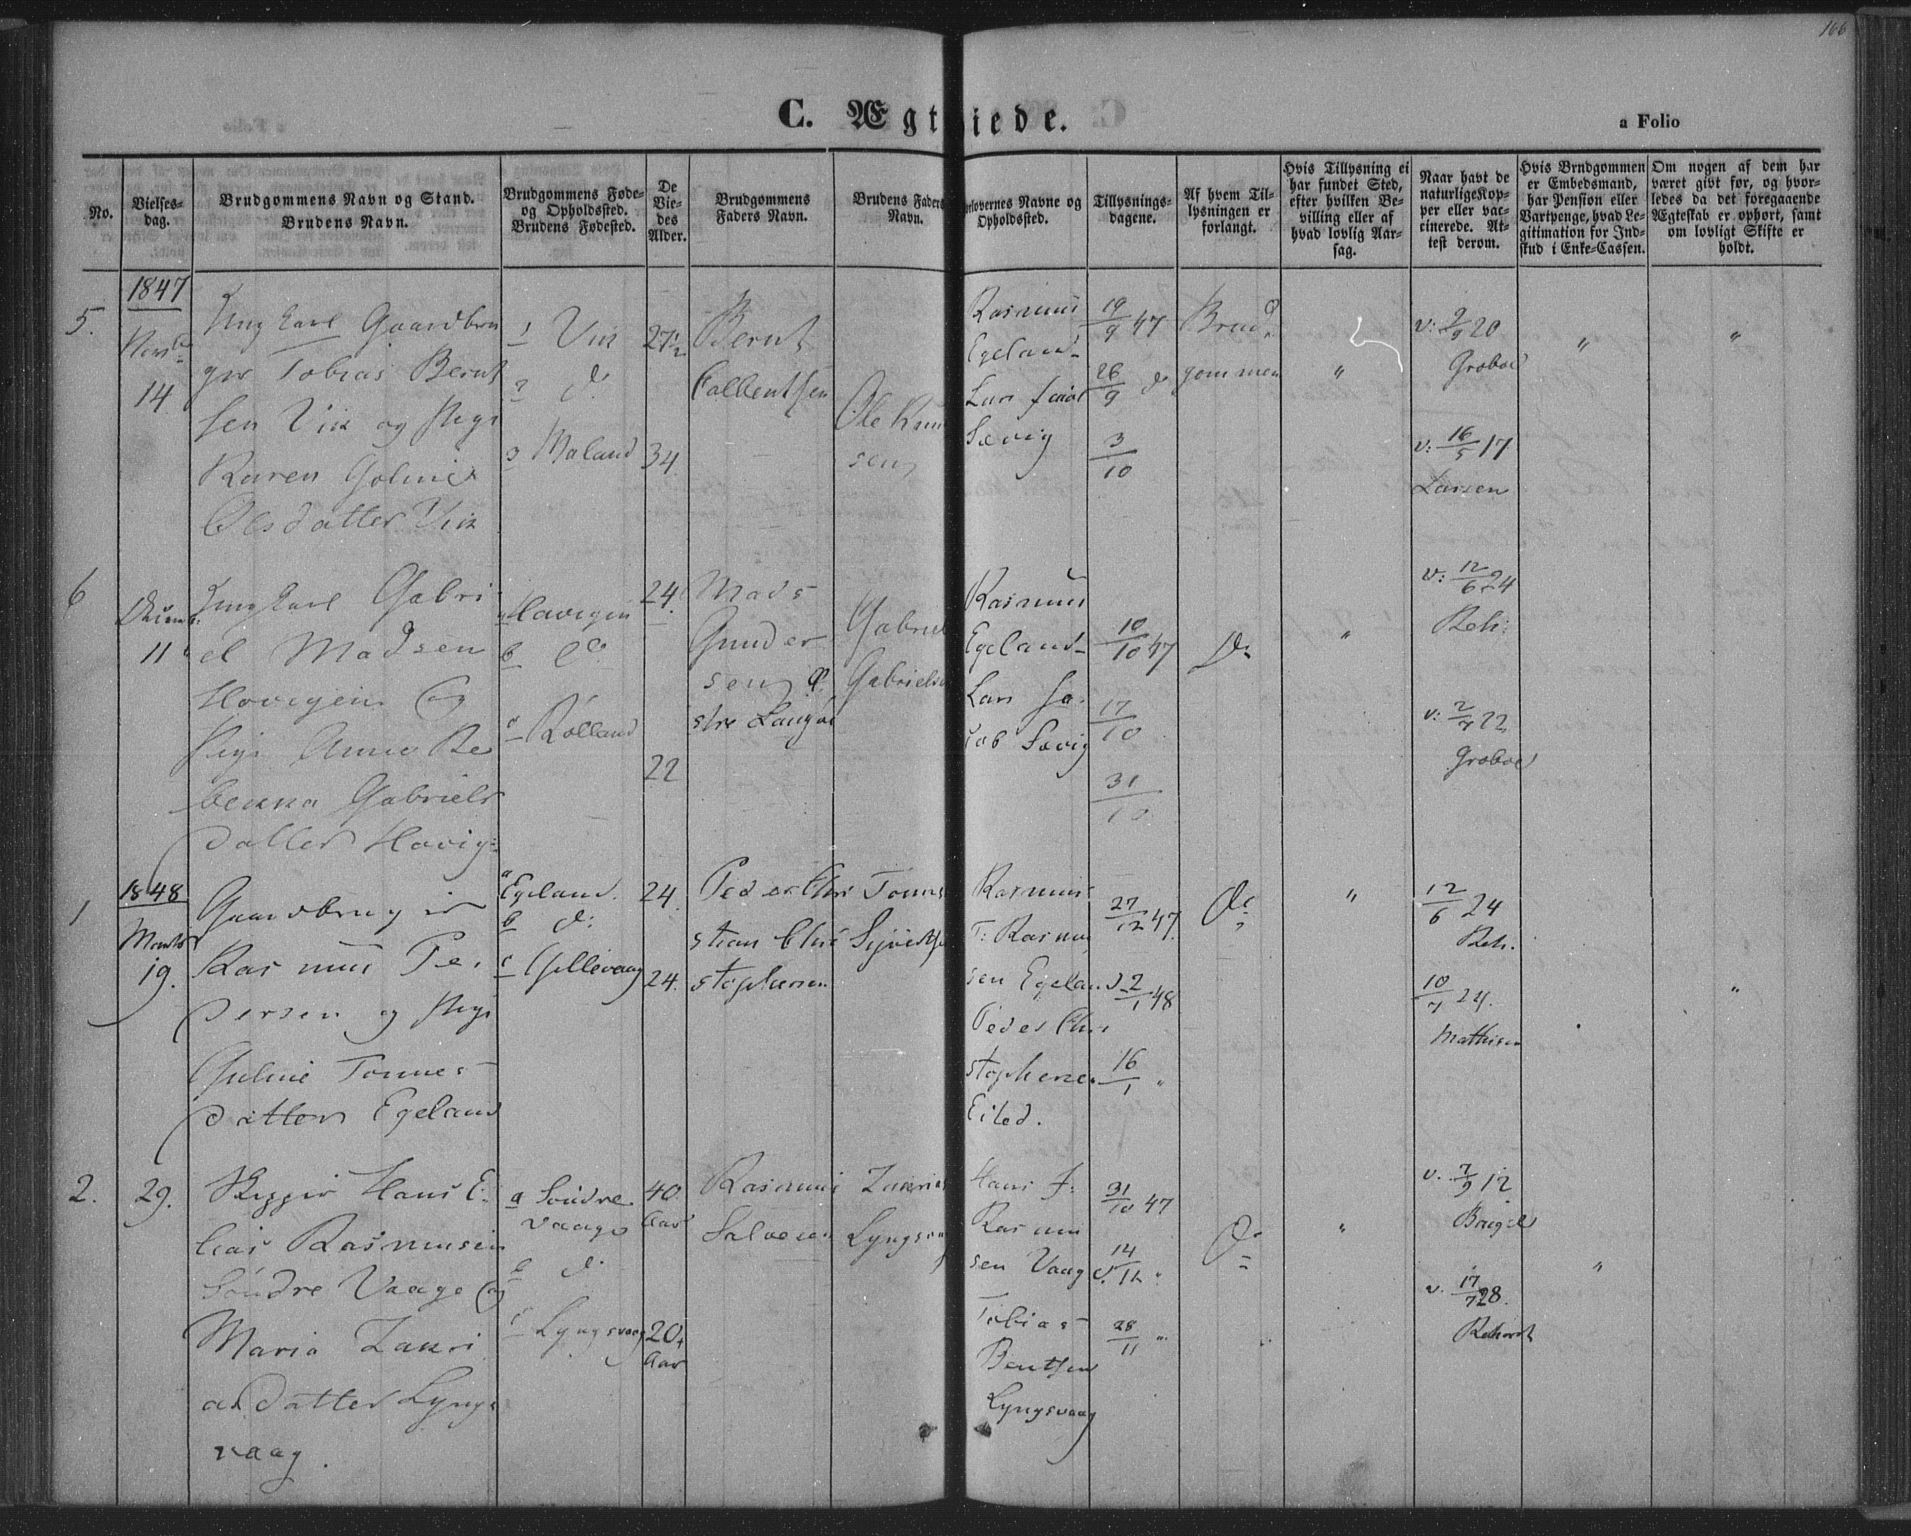 166
C. Ægtviede.
a Folio
No.
Vielses-
dag.
Brudgommens Navn og Stand.
Brudens Navn.
Brudgommens Føde-
og Opholdssted.
Brudens Fødested.
De
Vie-
des
Alder.
Brudgommens
Faders Navn.
Brudens Faders
Navn.
Forlovernes Navne og
Opholdssted.
Tillysnings-
dagene.
Af hvem Til-
lysningen er
forlangt.
Hvis Tillysning ei
har fundet Sted,
efter hvilken Be-
villing eller af
hvad lovlig Aar-
sag.
Naar havt de
naturlige Kop-
per eller vac-
cinerede. At-
test derom.
Hvis Brudgommen
er Embedsmand,
har Pension eller
Vartpenge, hvad Le-
gitimation for Ind-
skud i Enke-Cassen.
Om nogen af dem har
været givt før, og hvor-
ledes da det foregaaende
Ægteskab er ophørt, samt
om lovligt Skifte er
holdt.
1847
5.
14
Ungkarl Gaardbru
ger Tobias Bernt
sen Vik og Pige
Karen Goline
Olsdatter Vik
Vik
d:
Maland
27½
34
Bernt
Ole Knu
sen
Rasmus
Egeland
Lars
Sævig
19/9 47
26/9 d
3/10
Brud
gommen
"
v: 2/9 20
Groboe
v: 16/5 17
Larsen
"
"
6
11
Ungkarl Gabri
el Madsen
Hovigen og
Pige Anne Re
bekka Gabriels
datter Hovig
Hovigen
b d:
Rølland
24
22
Mads
Gunder
sen
stre Langøe
Gabriel
Gabrielse
Rasmus
Egeland
Lars Ja
cob Sævig
10/10 47
17/10
31/10
D:
"
v: 12/6 24
Reh:
v: 2/7 22
Groboe
1848
1
Marts
19.
Gaardbruger
Rasmus Pe
dersen og Pige
Guline Tønnes
datter Egeland
a Egeland
b d:
c Gillevaag
24.
24.
Peder Chri
stian Chri
stophersen
Tønnes
Rasmus
T: Rasmu
sen Egeland
Peder Chri
stophersen
Eiled.
27/12 47
2/1 48
16/1 "
D:
"
12/6 24
Reh.
10/7 24.
Mathisen
"
2.
29.
Skipper Hans E
lias Rasmusen
Søndre Vaage og
Maria Zakri
asdatter Lyngs
vaag.
a Søndre
vaage
b d:
c Lyngsvaag
40
Aar
20
Aar
Rasmus
Salvesen
Zakrias
Lyngsvaag
Hans J:
Rasmu
sen Vaag
Tobias
Bentsen
Lyngsvaag
31/10 47
14/11 "
28/11 "
D:
"
v. 7/9 12
v. 17/7 28.
"